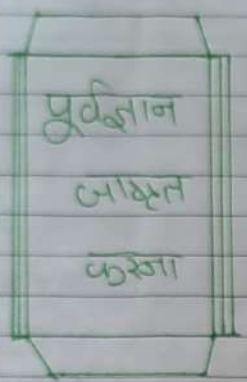 पूर्वज्ञान
जाग्रत
करना